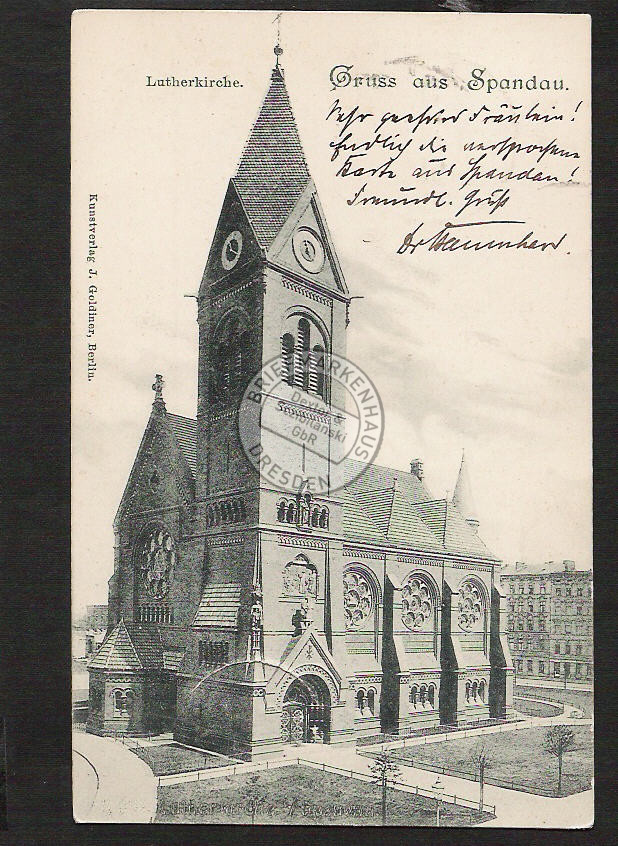 Lutherkirche.
Gruss aus Spandau.
Sehr geehrtes Fräulein!
Endlich die versprochene
Karte aus Spandau!
Freundl. Gruß
Dr
Kunstverlag J. Goldiner, Berlin.
BRIEFMARKENHAUS
Dexter &
GbR
DRESDEN